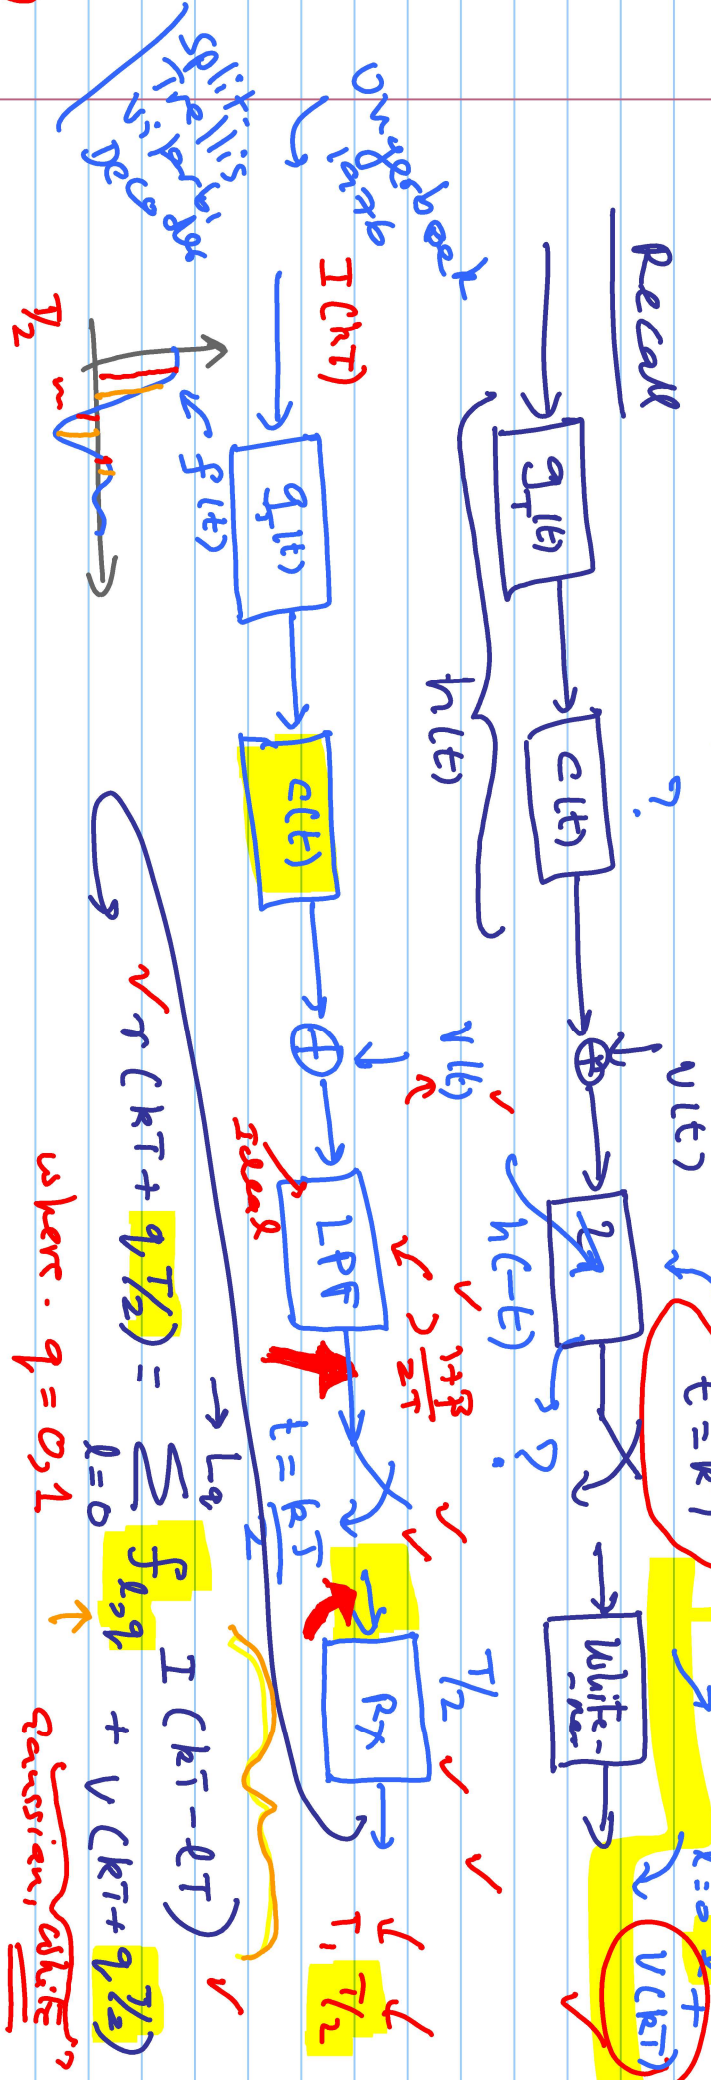 Recall
?
v(t)
t = kT
g_T(t)
c(t)
h(t)
h(-t)
?
White-
-ner
v(kT)
Ungerboeck
1976
I(kT)
g_T(t)
c(t)
v(t)
Ideal
LPF
1+β
2T
t = kT/2
T/2
Rx
T, T/2
split
trellis
Viterbi
Decoder
f(t)
T/2
r(kT + q T/2) = Σ_{l=0}^{L_q} f_{l,q} I(kT - lT) + v(kT + q T/2)
where q = 0,1
Gaussian, "white"